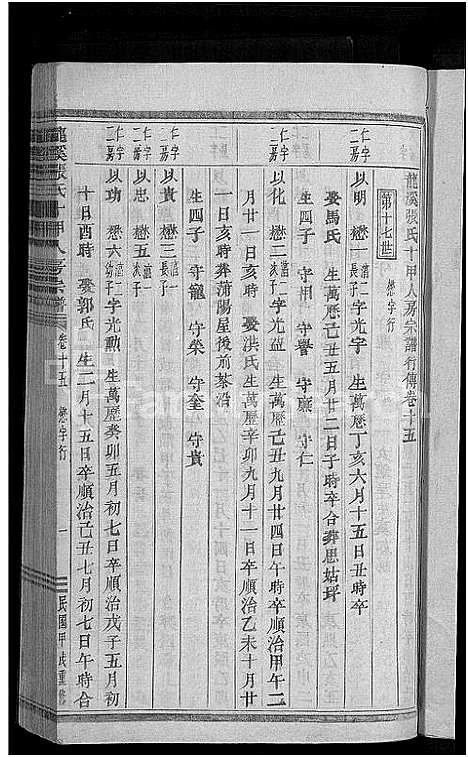 龍溪張氏十甲人房宗譜行傳卷十五
第十七世　懋字行
仁字二房
以明　懋一　滔一長子　字光宇　生萬厯丁亥六月十五日丑時卒
娶馬氏　生萬厯己丑五月廿二日子時卒合葬思姑坪
生四子　守相　守譽　守廉　守仁
仁字二房
以化　懋二　滔二次子　字光益　生萬厯己丑九月廿四日午時卒順治甲午二
月廿一日亥時　娶洪氏生萬厯辛卯九月十一日卒順治乙未十月廿
一日亥時葬蒲陽屋後前茶沿
生四子　守龍　守榮　守奎　守貴
仁字二房
以貴　懋三　滔一長子
仁字二房
以忠　懋五　滔一次子
仁字二房
以功　懋六　滔二次子　字光勲　生萬厯癸卯五月初七日卒順治戊子五月初
十日酉時　娶郭氏　生二月十五日卒順治己丑七月初七日午時合
龍溪張氏十甲人房宗譜　卷十五　懋字行　一　民國甲戌重修